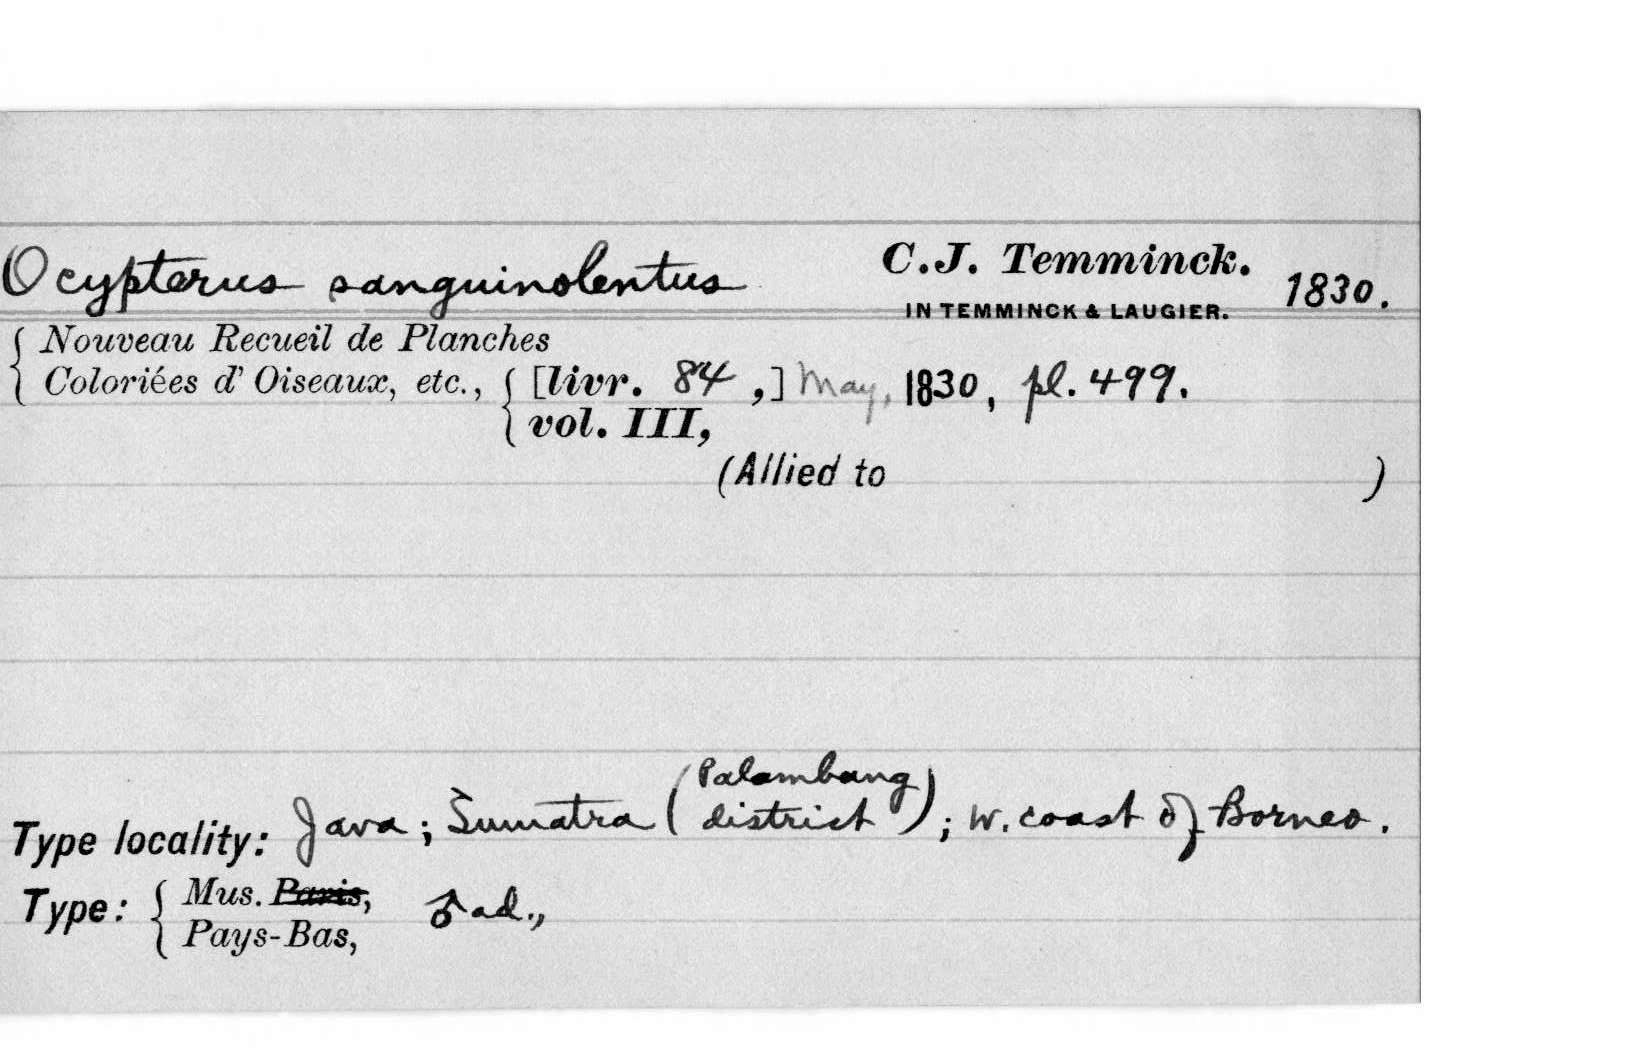 Ocypterus sanguinolentus C.J. Temminck. 1830.
IN TEMMINCK & LAUGIER.
Nouveau Recueil de Planches
Coloriées d' Oiseaux, etc., [livr. 84 ,] May, 1830, pl. 499.
vol. III,
(Allied to )
Type locality: Java; Sumatra (Palambang district); W. coast of Borneo.
Type: Mus. Paris, ♂ ad.,
Pays-Bas,